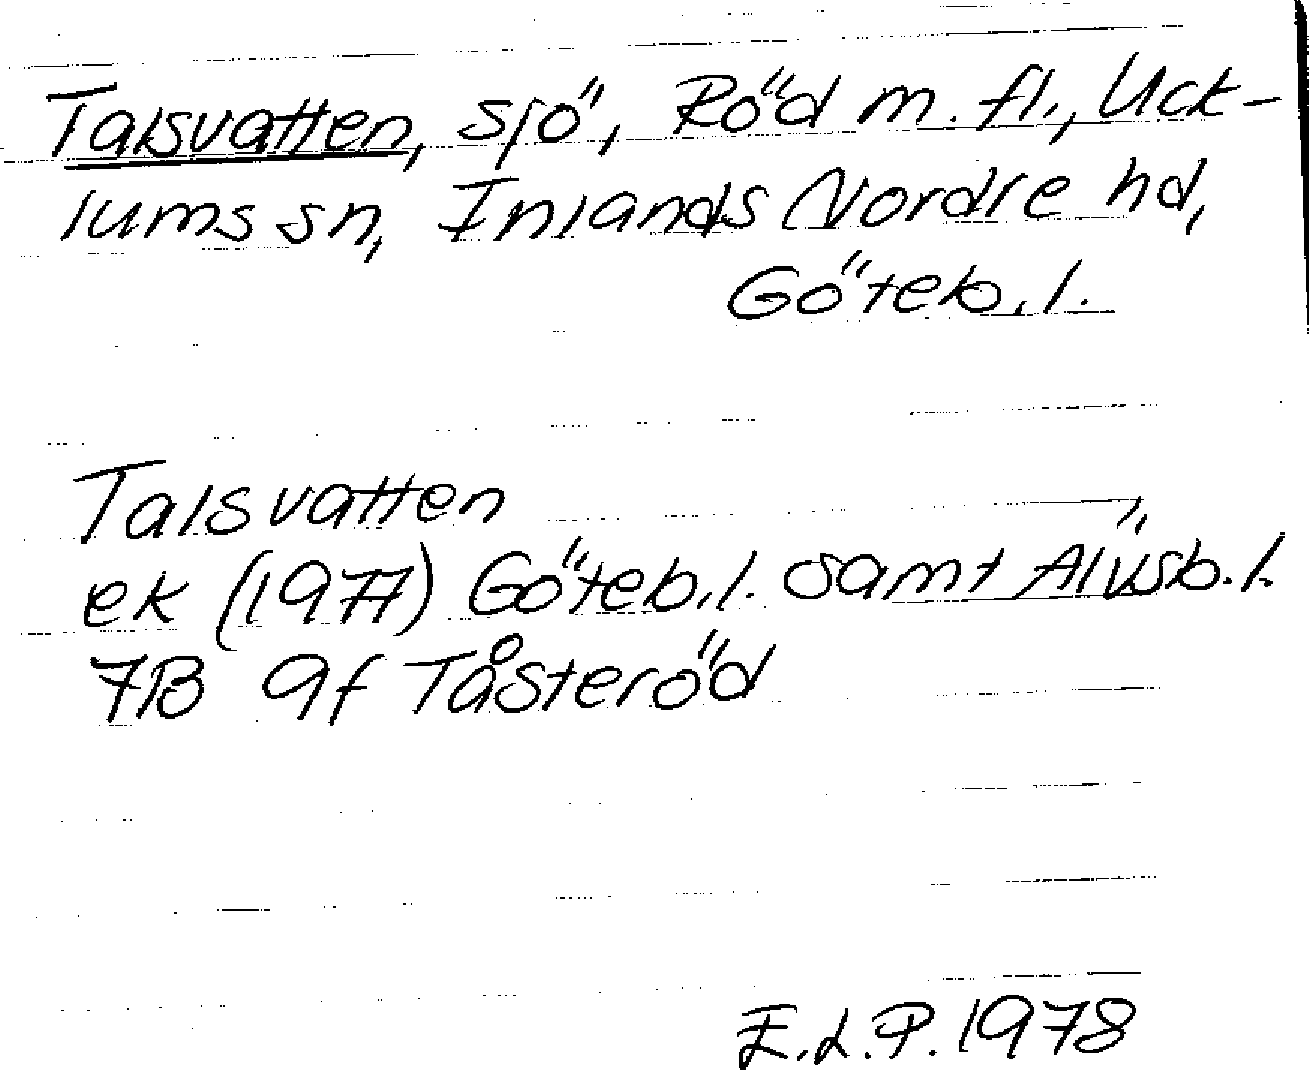 Talsvatten, sjö, Röd m. fl., Uck-
lums sn, Inlands Nordre hd,
Göteb. l.
Talsvatten
ek (1977) Göteb. l. samt Älvsb. l.
7B 9f Tåsteröd
E.L.P. 1978